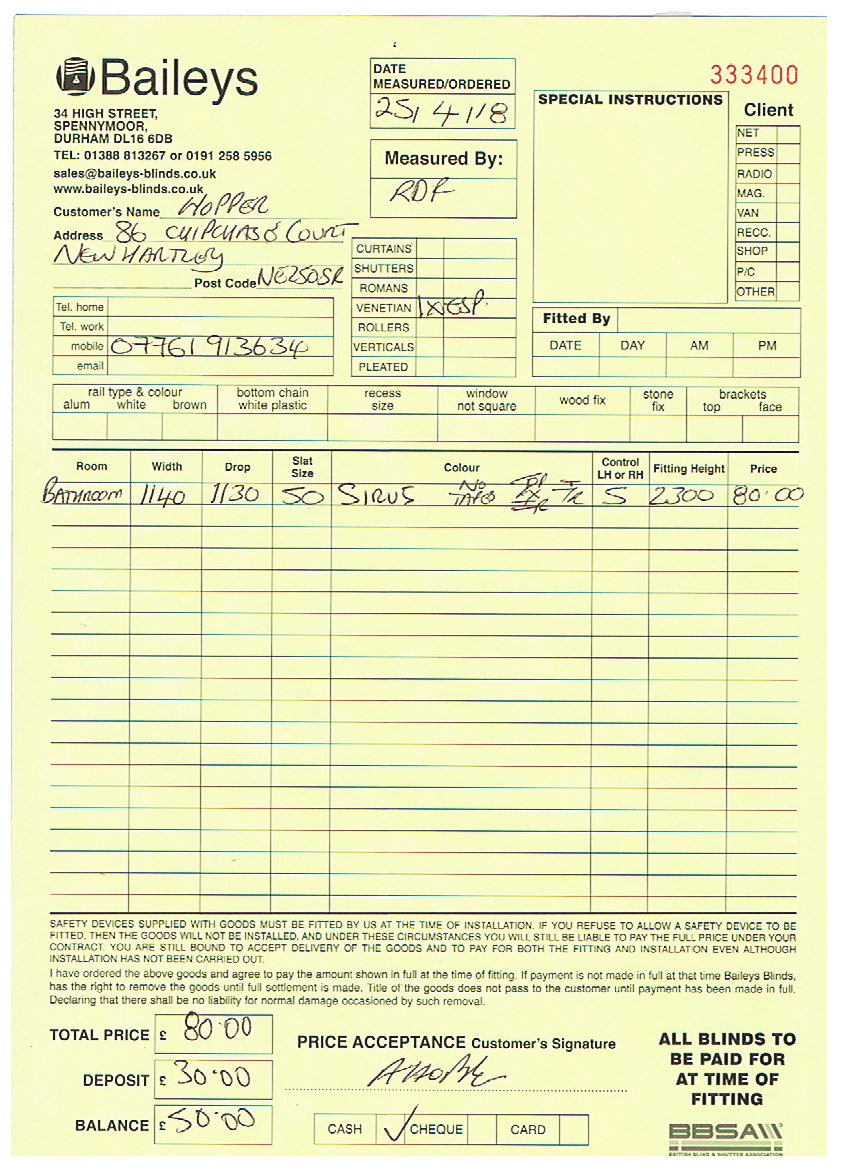 Baileys
34 HIGH STREET,
SPENNYMOOR,
DURHAM DL16 6DB
TEL: 01388 813267 or 0191 258 5956
sales@baileys-blinds.co.uk
www.baileys-blinds.co.uk
Customer's Name HOPPER
Address 86 CHIPCHASE COURT
NEW HARTLEY
Post Code NE250SR
Tel. home
Tel. work
mobile 07761 913634
email
DATE
MEASURED/ORDERED
25/4/18
Measured By:
RDF
CURTAINS
SHUTTERS
ROMANS
VENETIAN 1XESP.
ROLLERS
VERTICALS
PLEATED
333400
SPECIAL INSTRUCTIONS
Client
NET
PRESS
RADIO
MAG.
VAN
RECC.
SHOP
P/C
OTHER
Fitted By
DATE DAY AM PM
rail type & colour bottom chain recess window wood fix stone brackets
alum white brown white plastic size not square fix top face
Room Width Drop Slat Size Colour Control LH or RH Fitting Height Price
BATHROOM 1140 1130 50 SIRUS NO TAPES S 2300 80.00
SAFETY DEVICES SUPPLIED WITH GOODS MUST BE FITTED BY US AT THE TIME OF INSTALLATION. IF YOU REFUSE TO ALLOW A SAFETY DEVICE TO BE
FITTED, THEN THE GOODS WILL NOT BE INSTALLED, AND UNDER THESE CIRCUMSTANCES YOU WILL STILL BE LIABLE TO PAY THE FULL PRICE UNDER YOUR
CONTRACT. YOU ARE STILL BOUND TO ACCEPT DELIVERY OF THE GOODS AND TO PAY FOR BOTH THE FITTING AND INSTALLATION EVEN ALTHOUGH
INSTALLATION HAS NOT BEEN CARRIED OUT.
I have ordered the above goods and agree to pay the amount shown in full at the time of fitting. If payment is not made in full at that time Baileys Blinds,
has the right to remove the goods until full settlement is made. Title of the goods does not pass to the customer until payment has been made in full.
Declaring that there shall be no liability for normal damage occasioned by such removal.
TOTAL PRICE £ 80.00
DEPOSIT £ 30.00
BALANCE £ 50.00
PRICE ACCEPTANCE Customer's Signature
CASH ✓ CHEQUE CARD
ALL BLINDS TO
BE PAID FOR
AT TIME OF
FITTING
BBSA
BRITISH BLIND & SHUTTER ASSOCIATION